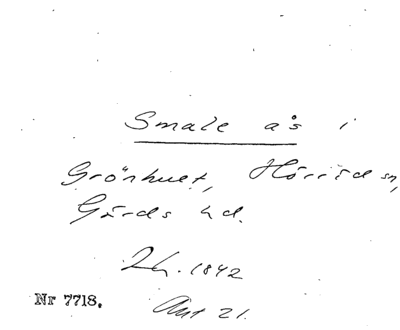 Smale ås i
Grönhult, Hörröd sn,
Gärds hd.
Lh. 1842
Nr 7718.
Akt 21.